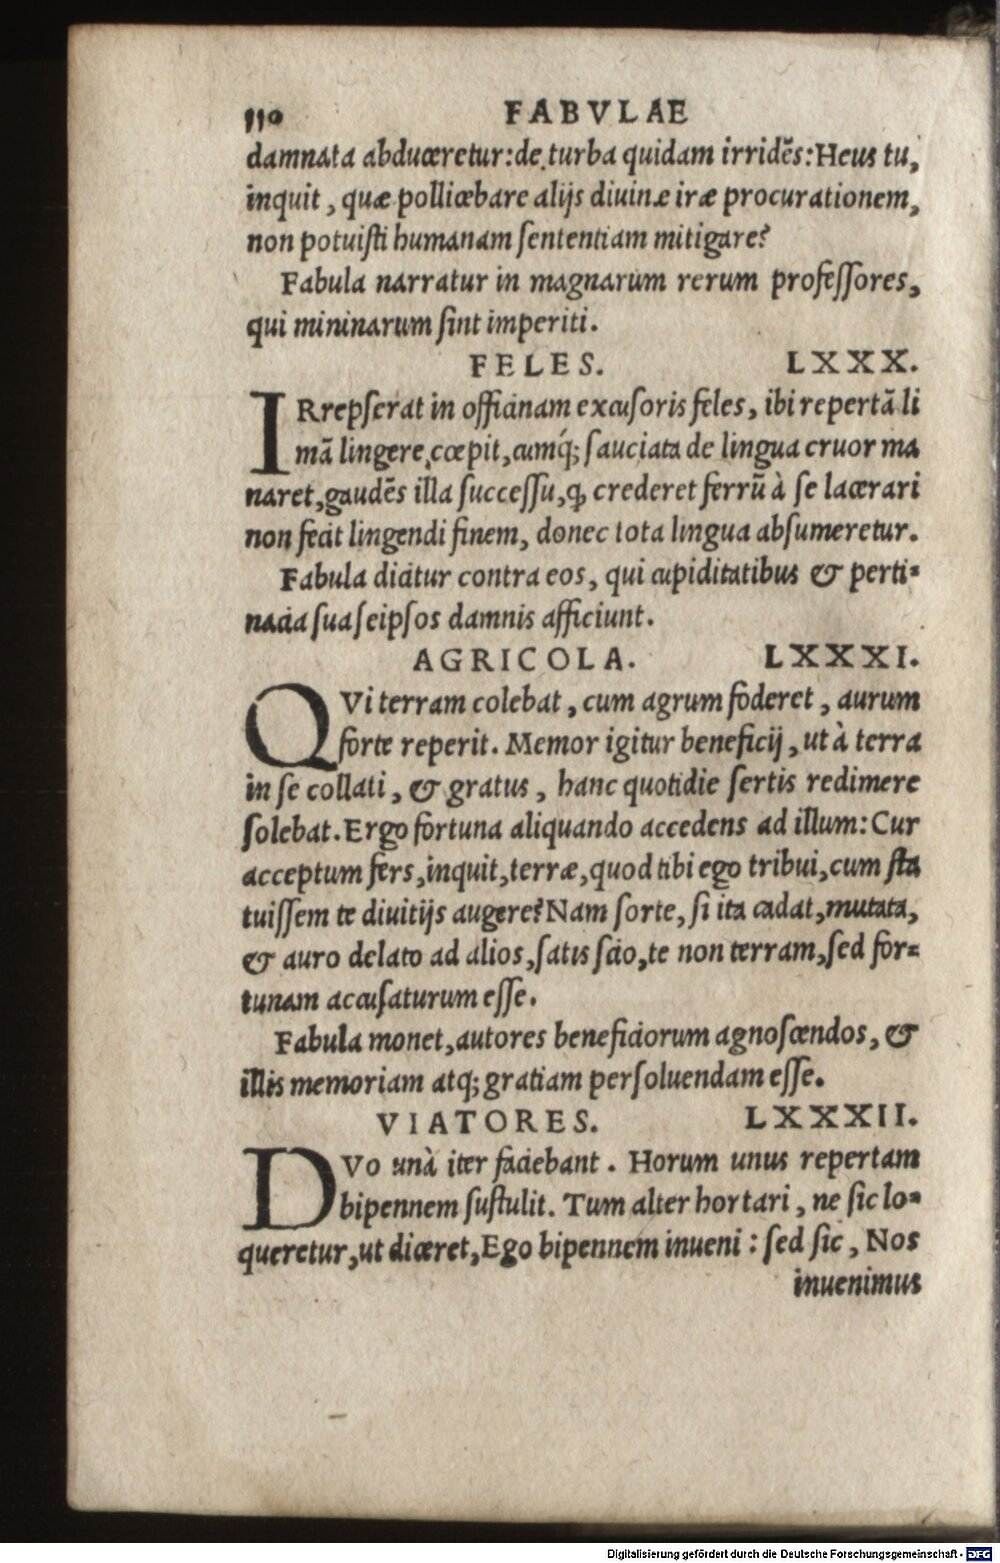 110 FABVLAE
damnata abduceretur: de turba quidam irridēs: Heus tu,
inquit, quæ pollicebare alijs diuinæ iræ procurationem,
non potuiſti humanam ſententiam mitigare?
Fabula narratur in magnarum rerum profeſſores,
qui mininarum ſint imperiti.
FELES. LXXX.
IRrepſerat in officinam excuſoris feles, ibi repertā li
mā lingere cœpit, cumq́; ſauciata de lingua cruor ma
naret, gaudēs illa ſucceſſu, ꝙ crederet ferrū à ſe lacerari
non fecit lingendi finem, donec tota lingua abſumeretur.
Fabula dicitur contra eos, qui cupiditatibus & perti⸗
nacia ſua ſeipſos damnis afficiunt.
AGRICOLA. LXXXI.
QVi terram colebat, cum agrum foderet, aurum
forte reperit. Memor igitur beneficij, ut à terra
in ſe collati, & gratus, hanc quotidie ſertis redimere
ſolebat. Ergo fortuna aliquando accedens ad illum: Cur
acceptum fers, inquit, terræ, quod tibi ego tribui, cum ſta
tuiſſem te diuitijs augere? Nam ſorte, ſi ita cadat, mutata,
& auro delato ad alios, ſatis ſcio, te non terram, ſed for⸗
tunam accuſaturum eſſe.
Fabula monet, autores beneficiorum agnoſcendos, &
illis memoriam atq; gratiam perſoluendam eſſe.
VIATORES. LXXXII.
DVo unà iter faciebant. Horum unus repertam
bipennem ſuſtulit. Tum alter hortari, ne ſic lo⸗
queretur, ut diceret, Ego bipennem inueni: ſed ſic, Nos
inuenimus
Digitalisierung gefördert durch die Deutsche Forschungsgemeinschaft - DFG